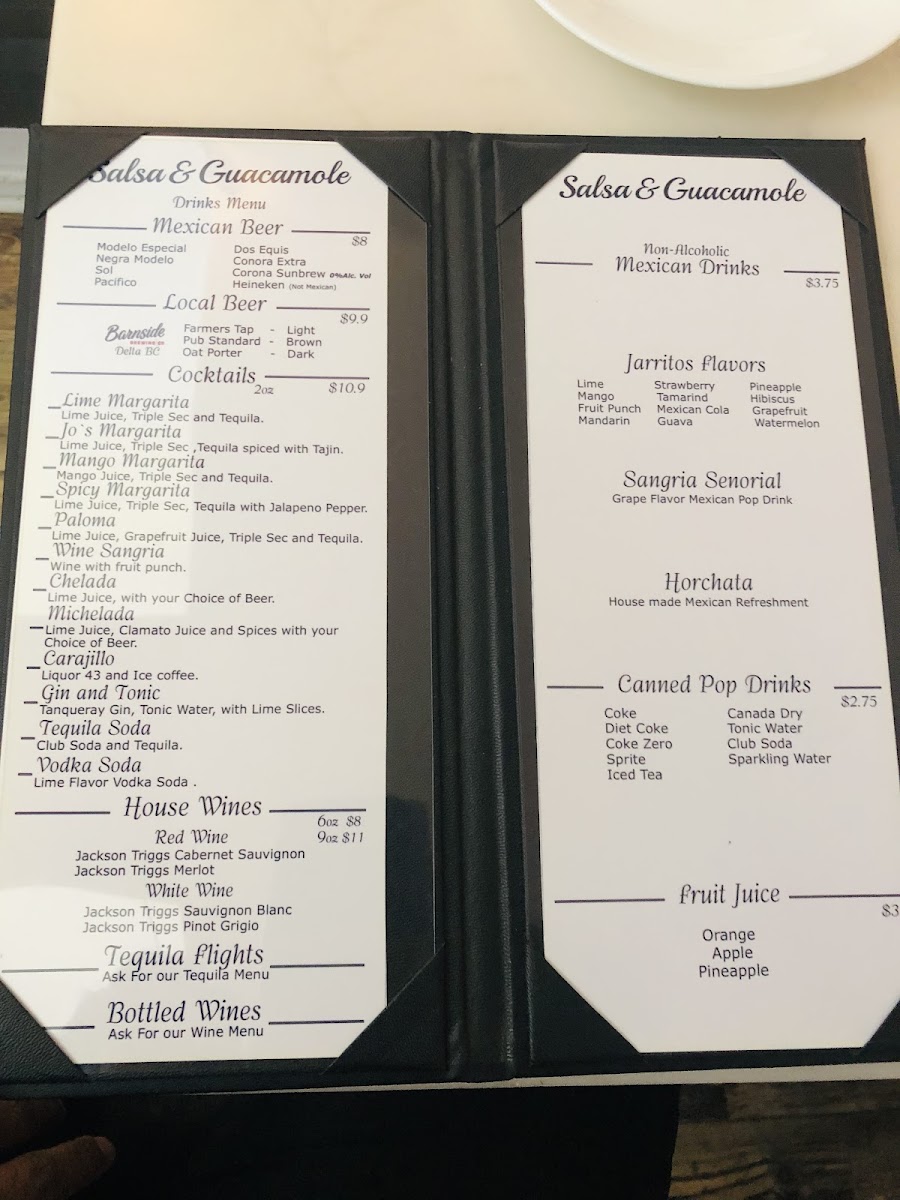 Salsa & Guacamole
Drinks Menu
Mexican Beer
$8
Modelo Especial
Negra Modelo
Sol
Pacifico
Dos Equis
Conora Extra
Corona Sunbrew 0%Alc. Vol
Heineken (Not Mexican)
Local Beer
$9.9
Barnside
BREWING CO
Delta BC
Farmers Tap - Light
Pub Standard - Brown
Oat Porter - Dark
Cocktails
2oz
$10.9
Lime Margarita
Lime Juice, Triple Sec and Tequila.
Jo`s Margarita
Lime Juice, Triple Sec ,Tequila spiced with Tajin.
Mango Margarita
Mango Juice, Triple Sec and Tequila.
Spicy Margarita
Lime Juice, Triple Sec, Tequila with Jalapeno Pepper.
Paloma
Lime Juice, Grapefruit Juice, Triple Sec and Tequila.
Wine Sangria
Wine with fruit punch.
Chelada
Lime Juice, with your Choice of Beer.
Michelada
Lime Juice, Clamato Juice and Spices with your
Choice of Beer.
Carajillo
Liquor 43 and Ice coffee.
Gin and Tonic
Tanqueray Gin, Tonic Water, with Lime Slices.
Tequila Soda
Club Soda and Tequila.
Vodka Soda
Lime Flavor Vodka Soda .
House Wines
6oz $8
9oz $11
Red Wine
Jackson Triggs Cabernet Sauvignon
Jackson Triggs Merlot
White Wine
Jackson Triggs Sauvignon Blanc
Jackson Triggs Pinot Grigio
Tequila Flights
Ask For our Tequila Menu
Bottled Wines
Ask For our Wine Menu
Salsa & Guacamole
Non-Alcoholic
Mexican Drinks
$3.75
Jarritos Flavors
Lime
Mango
Fruit Punch
Mandarin
Strawberry
Tamarind
Mexican Cola
Guava
Pineapple
Hibiscus
Grapefruit
Watermelon
Sangria Senorial
Grape Flavor Mexican Pop Drink
Horchata
House made Mexican Refreshment
Canned Pop Drinks
$2.75
Coke
Diet Coke
Coke Zero
Sprite
Iced Tea
Canada Dry
Tonic Water
Club Soda
Sparkling Water
Fruit Juice
$3
Orange
Apple
Pineapple